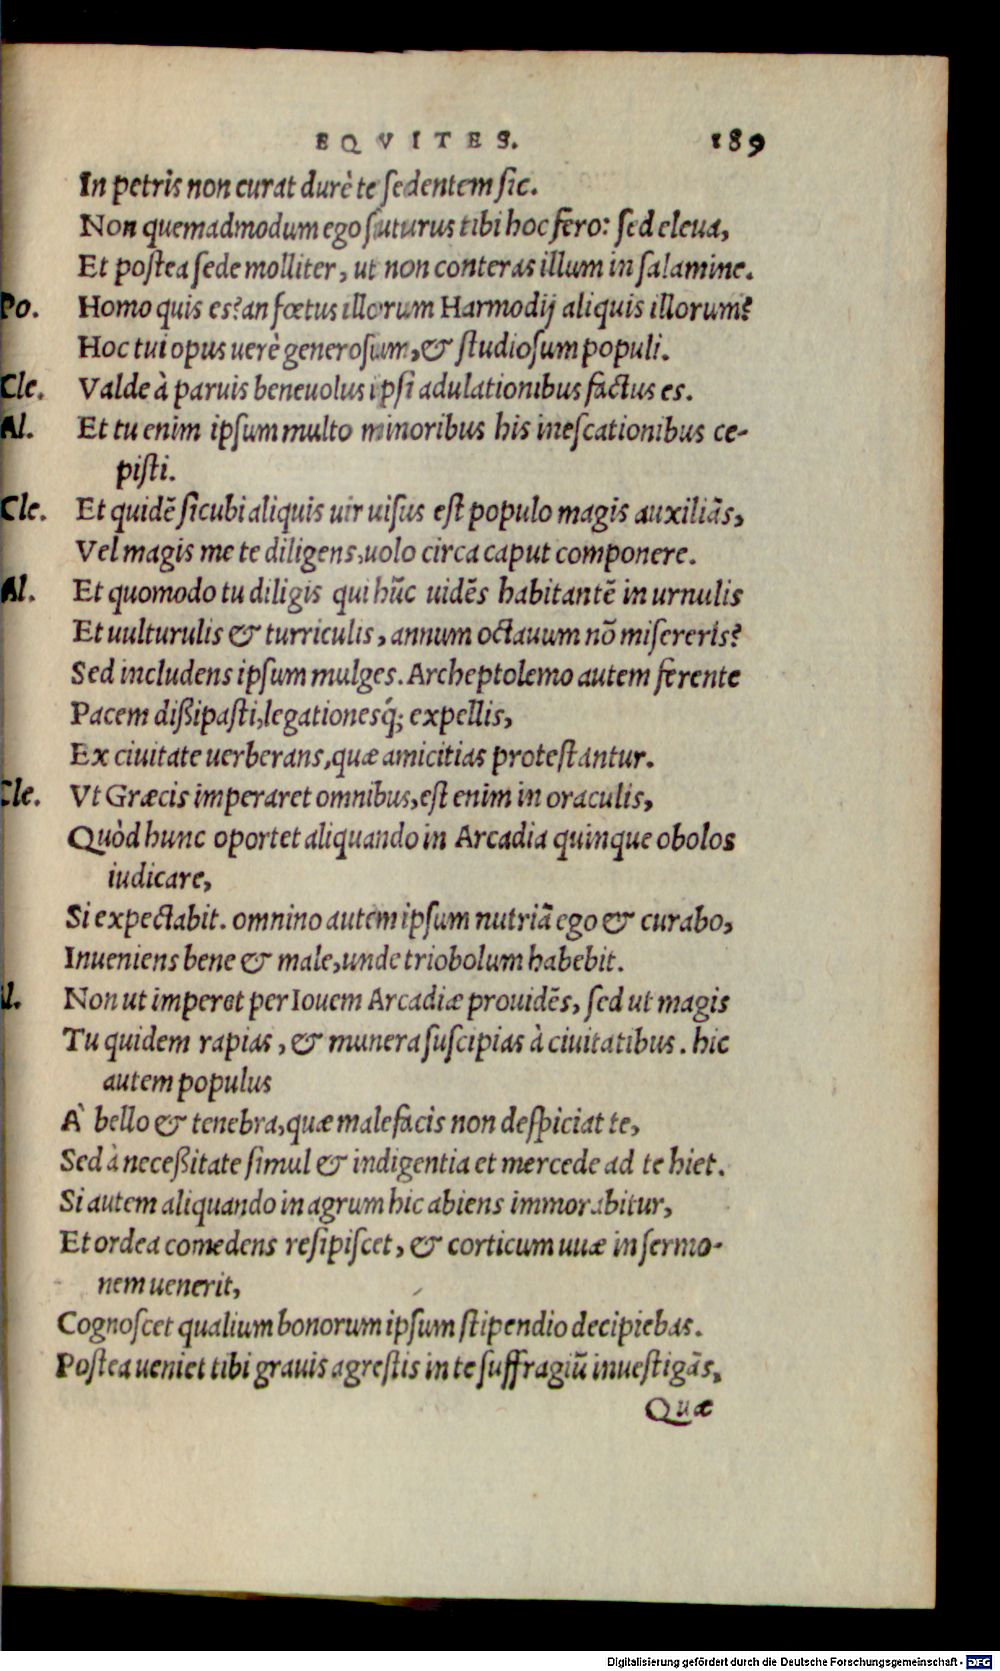 EQVITES. 189
In petris non curat durè te sedentem sic.
Non quemadmodum ego suturus tibi hoc fero: sed eleua,
Et postea sede molliter, ut non conteras illum in salamine.
Po. Homo quis es? an fœtus illorum Harmodij aliquis illorum?
Hoc tui opus uerè generosum, & studiosum populi.
Cle. Valde à paruis beneuolus ipsi adulationibus factus es.
Al. Et tu enim ipsum multo minoribus his inescationibus ce-
pisti.
Cle. Et quidẽ sicubi aliquis uir uisus est populo magis auxiliãs,
Vel magis me te diligens, uolo circa caput componere.
Al. Et quomodo tu diligis qui hũc uidẽs habitantẽ in urnulis
Et uulturulis & turriculis, annum octauum nõ misereris?
Sed includens ipsum mulges. Archeptolemo autem ferente
Pacem dißipasti, legationesq́; expellis,
Ex ciuitate uerberans, quæ amicitias protestantur.
Cle. Vt Græcis imperaret omnibus, est enim in oraculis,
Quòd hunc oportet aliquando in Arcadia quinque obolos
iudicare,
Si expectabit. omnino autem ipsum nutriã ego & curabo,
Inueniens bene & male, unde triobolum habebit.
l. Non ut imperet per Iouem Arcadiæ prouidẽs, sed ut magis
Tu quidem rapias, & munera suscipias à ciuitatibus. hic
autem populus
À bello & tenebra, quæ malefacis non despiciat te,
Sed à neceßitate simul & indigentia et mercede ad te hiet.
Si autem aliquando in agrum hic abiens immorabitur,
Et ordea comedens resipiscet, & corticum uuæ in sermo-
nem uenerit,
Cognoscet qualium bonorum ipsum stipendio decipiebas.
Postea ueniet tibi grauis agrestis in te suffragiũ inuestigãs,
Quæ
Digitalisierung gefördert durch die Deutsche Forschungsgemeinschaft - DFG